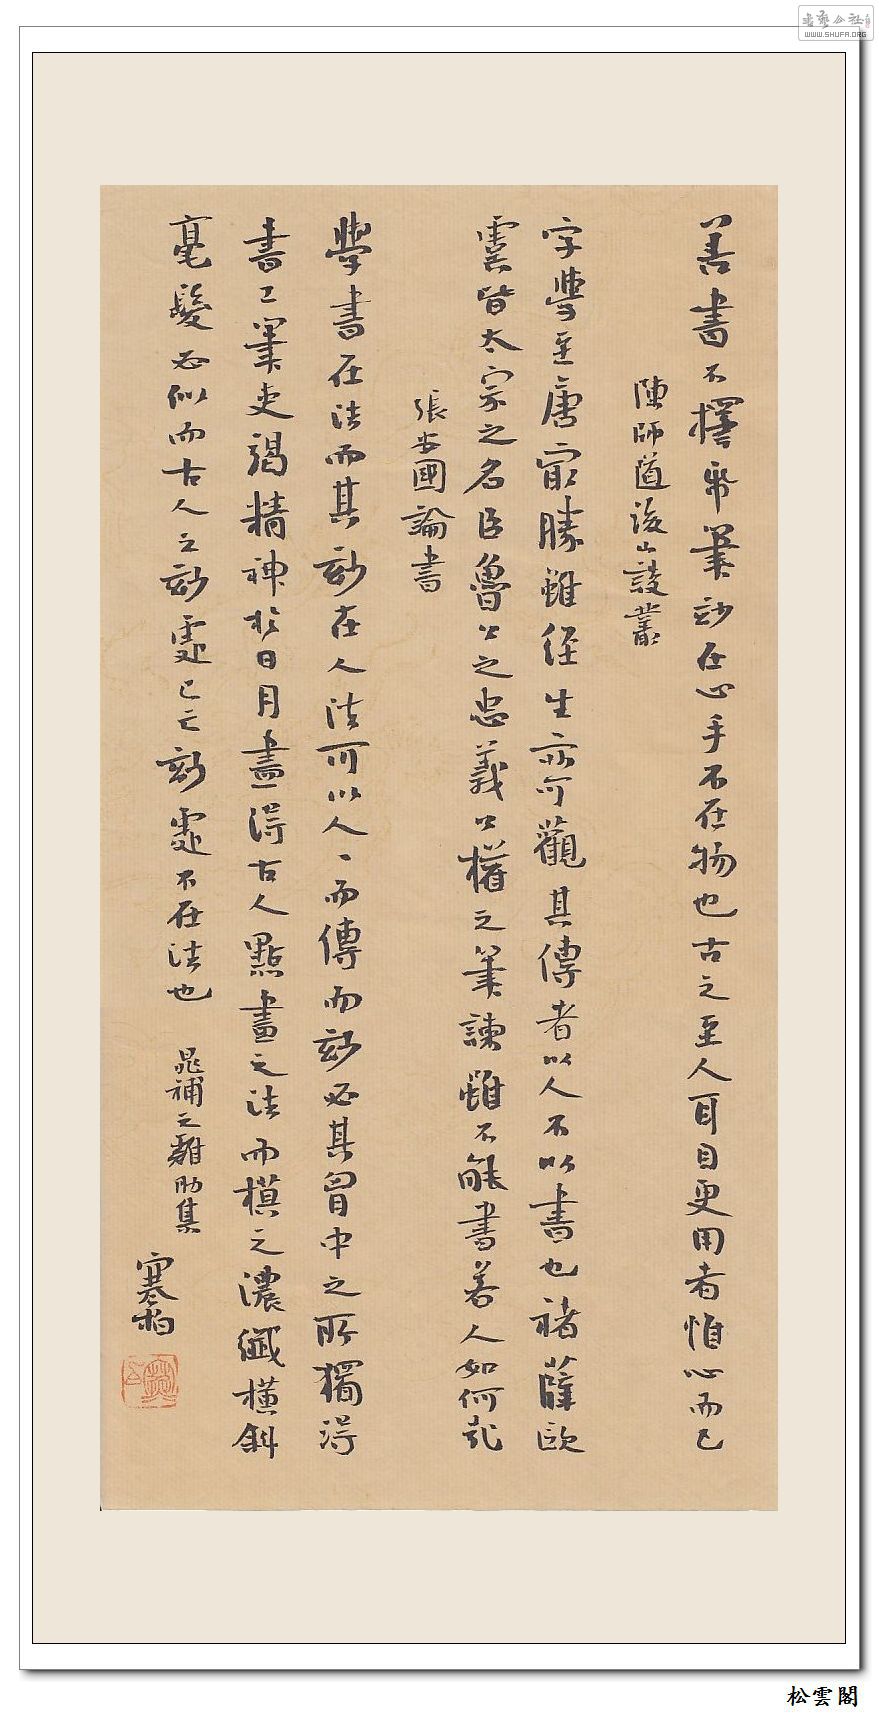 善書不擇紙筆妙在心手不在物也古之至人耳目更用者惟心而已
陳師道後山談叢
字學至唐最勝雖經生亦可觀其傳者以人不以書也褚薛歐
虞皆太宗之名臣魯公之忠義公權之筆諫雖不能書若人如何哉
張安國論書
學書在法而其妙在人法可以人、而傳而妙必其胷中之所獨得
書工筆吏竭精神於日月盡得古人點畫之法而模之濃纖橫斜
毫髮必似而古人之妙處已亡妙處不在法也
晁補之雞肋集
寒柏
書藝公社
WWW.SHUFA.ORG
松雲閣